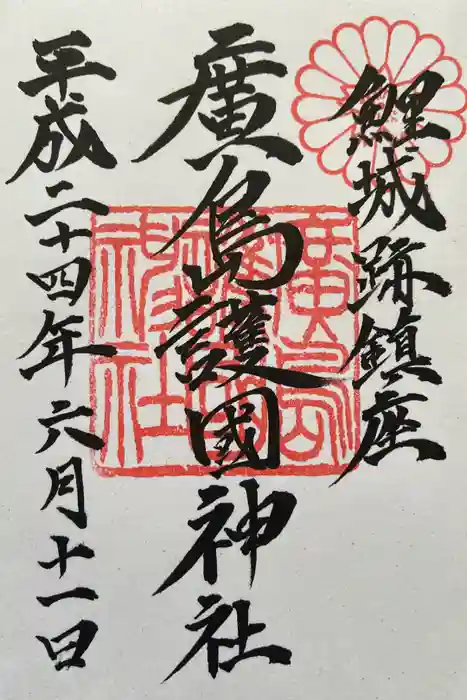 鯉城跡鎮座
廣島護國神社
平成二十四年六月十一日
廣島護國神社